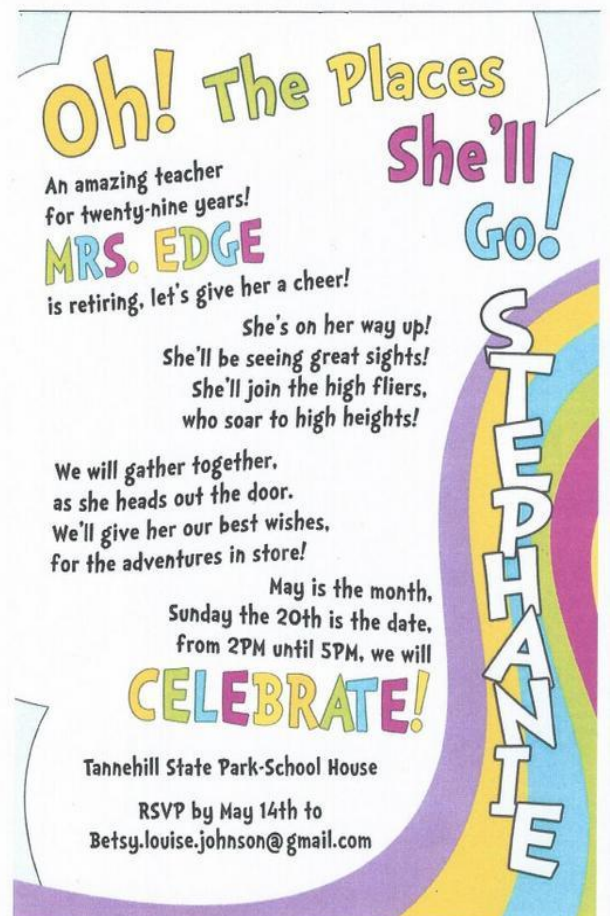 Oh! The Places
She'll
Go!
An amazing teacher
for twenty-nine years!
MRS. EDGE
is retiring, let's give her a cheer!
She's on her way up!
She'll be seeing great sights!
She'll join the high fliers,
who soar to high heights!
We will gather together,
as she heads out the door.
We'll give her our best wishes,
for the adventures in store!
May is the month,
Sunday the 20th is the date,
from 2PM until 5PM, we will
CELEBRATE!
Tannehill State Park-School House
RSVP by May 14th to
Betsy.louise.johnson@gmail.com
STEPHANIE